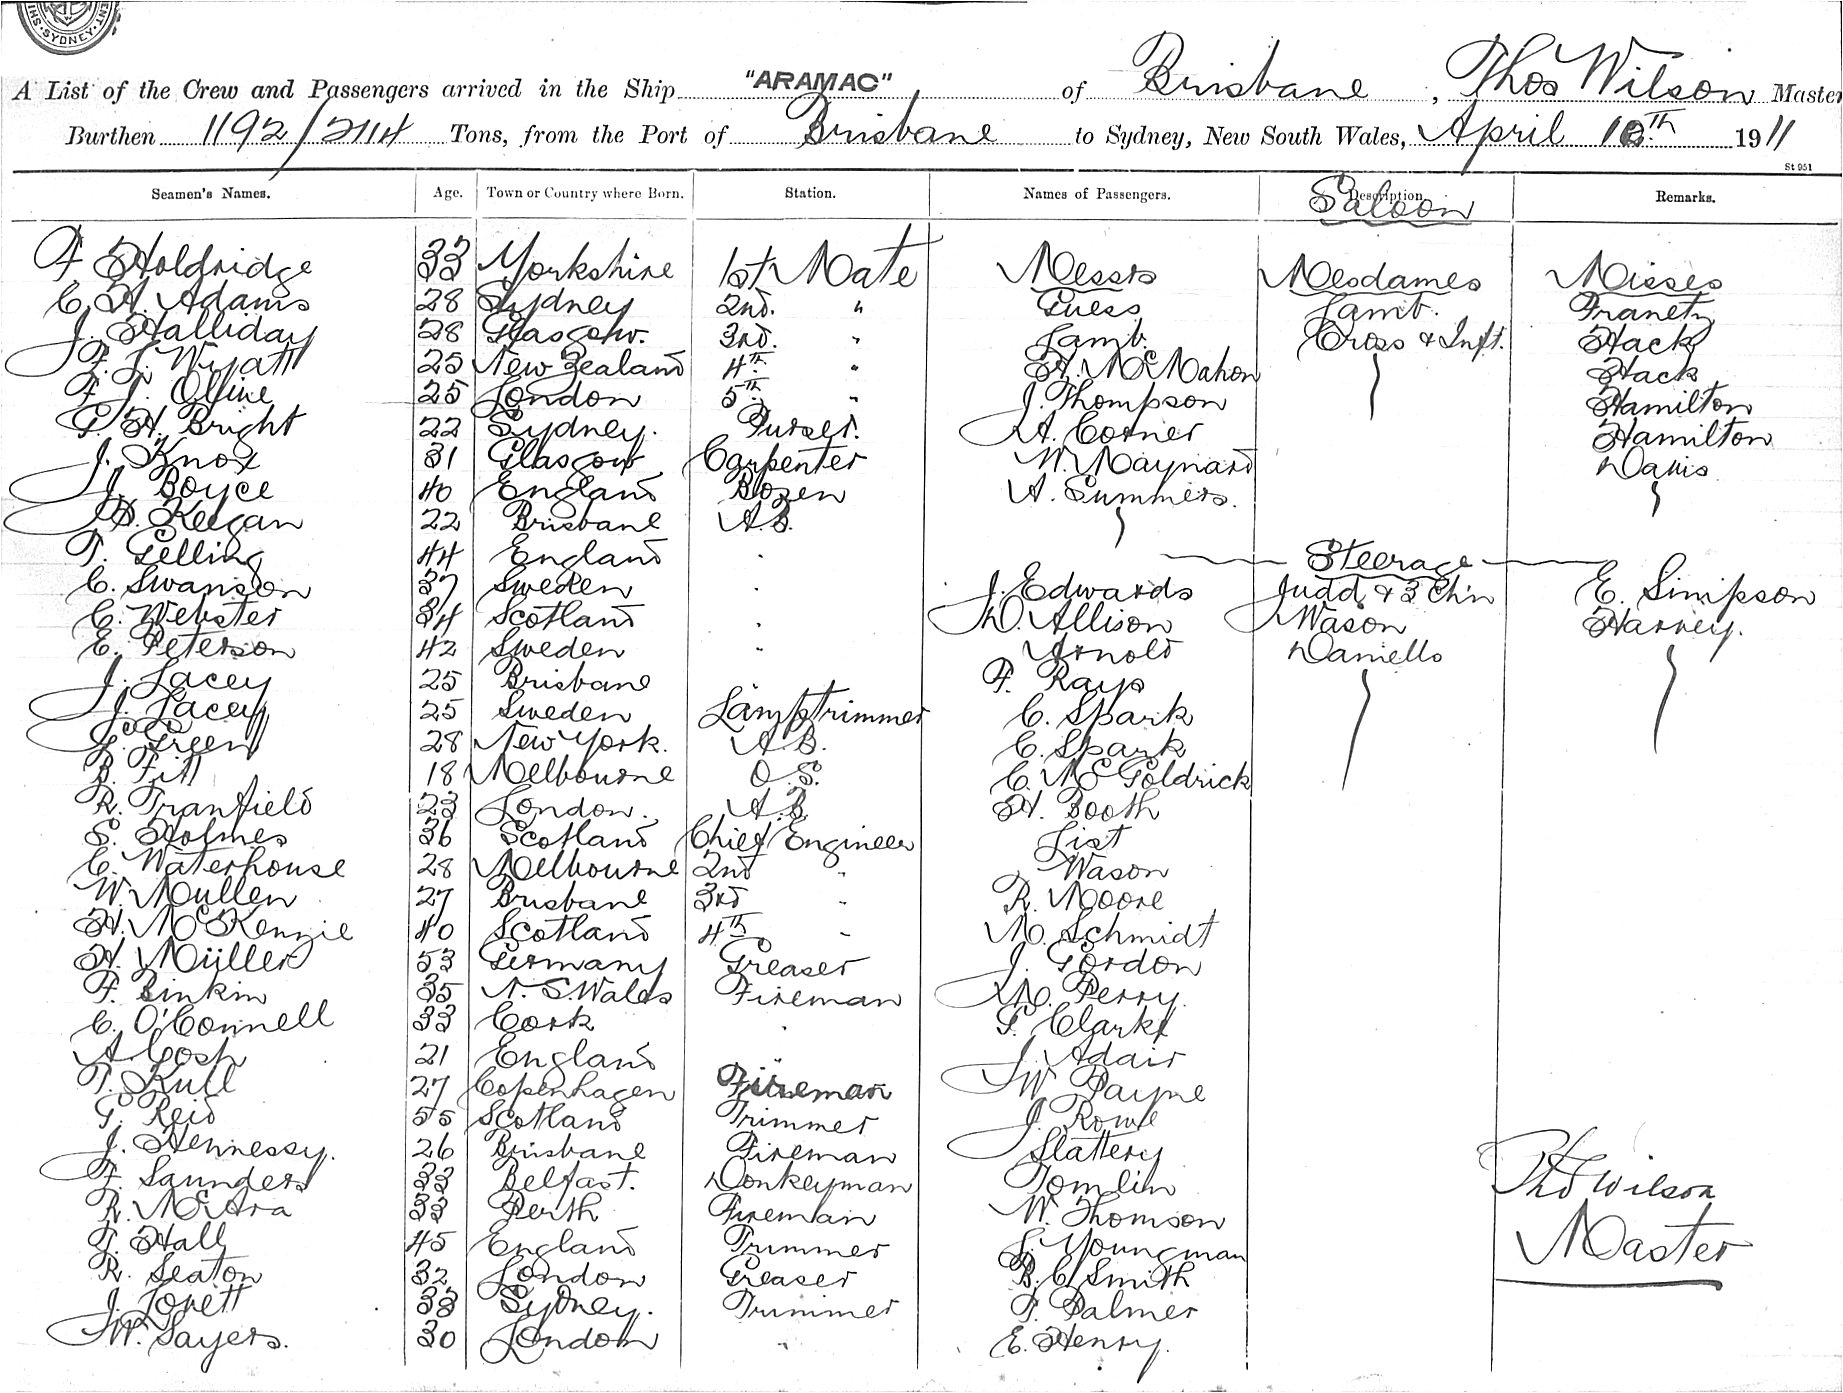 SYDNEY
A List of the Crew and Passengers arrived in the Ship "ARAMAC" of Brisbane, Thos Wilson Master
Burthen 1192/2114 Tons, from the Port of Brisbane to Sydney, New South Wales, April 10th 1911
St 951
Seamen's Names. Age. Town or Country where Born. Station. Names of Passengers. Description Remarks.
Saloon
F Holdridge 33 Yorkshire 1st Mate Messrs Mesdames Misses
C. H. Adams 28 Sydney 2nd. " Guess Lamb.
J. Halliday 28 Glasgow. 3rd. " Lamb. Cross & Inft. Hack
F. L. Wyatt 25 New Zealand 4th " H. McMahon Hack
F. J. Olline 25 London 5th " J. Thompson Hamilton
G. H. Bright 22 Sydney. Purser. A. Corner Hamilton
J. Knox 31 Glasgow Carpenter W. Maynard Davis
J. Boyce 40 England Bozen A. Summers.
D. Keegan 22 Brisbane A.B.
T. Gelling 44 England " Steerage
C. Swanson 37 Sweden " J. Edwards Judd & 3 Ch'n E. Simpson
C. Webster 34 Scotland " D. Allison Wason Harvey.
E. Peterson 42 Sweden " Arnold Daniells
J. Lacey 25 Brisbane F. Rays
J. Lacey 25 Sweden Lamptrimmer C. Spark
Green 28 New York. A.B. C. Spark
B. Fitt 18 Melbourne O.S. C. McGoldrick
R. Tranfield 23 London. A.B. H. Booth
S. Holmes 36 Scotland Chief Engineer List
C. Waterhouse 28 Melbourne 2nd " Wason
W. Mullen 27 Brisbane 3rd " R. Moore
H. McKenzie 40 Scotland 4th " M. Schmidt
H. Müller 53 Germany Greaser J. Gordon
F. Binkin 35 N. S. Wales Fireman M. Perry.
C. O'Connell 33 Cork " G. Clarke
A Cosh 21 England " J. Adair
T. Kull 27 Copenhagen Fireman W Payne
G. Reid 55 Scotland Trimmer J. Rowe
J. Hennessy. 26 Brisbane Fireman Slattery
F. Saunders 33 Belfast. Donkeyman Tomlin
R. McAra 33 Perth Fireman W. Thomson
T. Hall 45 England Trimmer Youngman
R. Seaton 32 London Greaser B. C. Smith
J. Lovett 33 Sydney. Trimmer T. Palmer
W. Sayers. 30 London " E. Henry.
Thos Wilson
Master